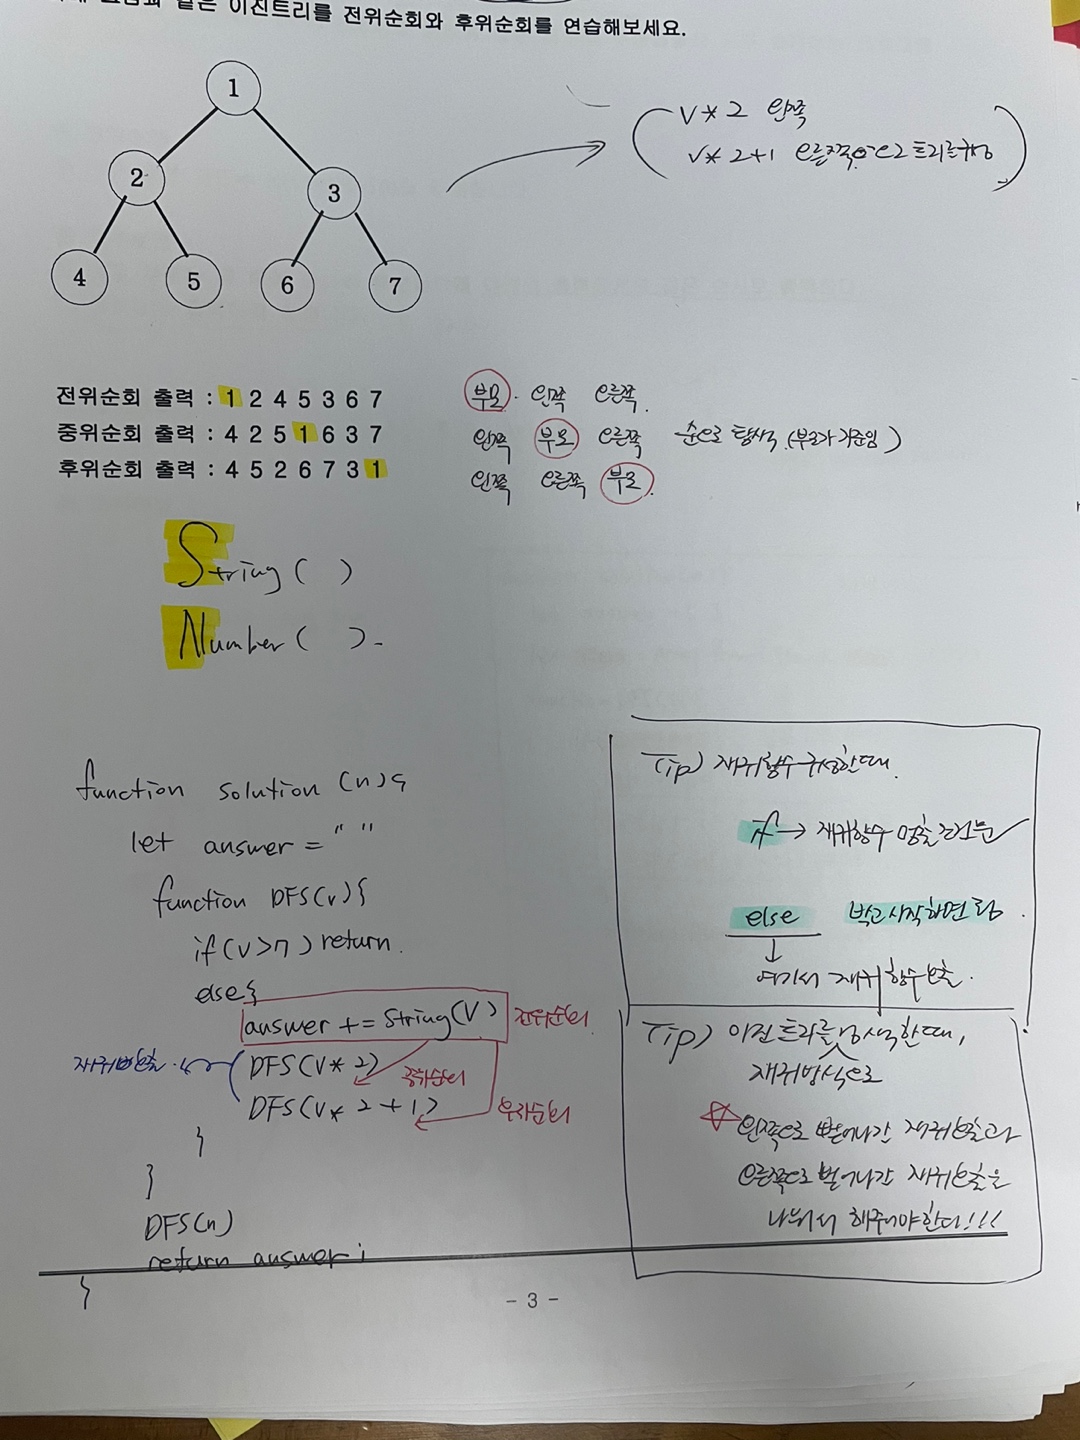 같은 이진트리를 전위순회와 후위순회를 연습해보세요.
1
2
3
4
5
6
7
V*2 왼쪽
V*2+1 오른쪽으로 트리를
전위순회 출력 : 1 2 4 5 3 6 7
부모. 왼쪽 오른쪽.
중위순회 출력 : 4 2 5 1 6 3 7
왼쪽 부모 오른쪽 순으로 탐색 (부모가 기준임)
후위순회 출력 : 4 5 2 6 7 3 1
왼쪽 오른쪽 부모.
String( )
Number( ).
function solution (n){
let answer = " "
function DFS(v){
if(v>n) return.
else{
answer += String(V)
전위순회
재귀호출.
DFS(V*2)
중위순회
DFS(V*2+1)
후위순회
}
}
DFS(n)
return answer;
}
Tip) 재귀함수 구성할때.
if → 재귀함수 멈출 조건문
else 박고 시작하면 됨.
여기서 재귀함수 호출.
Tip) 이진트리를 탐색할때,
재귀방식으로
왼쪽으로 뻗어나간 재귀호출과
오른쪽으로 뻗어나간 재귀호출을
나눠서 해줘야한다!!!
- 3 -